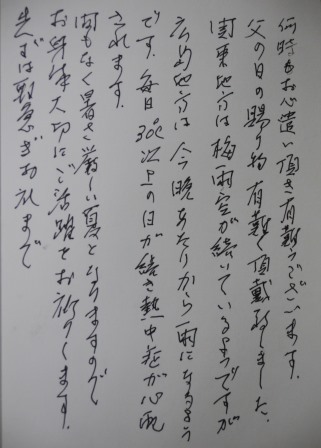 何時もお心遣い頂き有難うございます.
父の日の賜り物有難く頂戴致しました.
関東地方は梅雨空が続いているようですが
広島地方は今晩あたりから雨になるよう
です. 毎日30℃以上の日が続き熱中症が心配
されます.
間もなく暑さ厳しい夏となりますので
お身体大切にご活躍をお祈りします.
先ずは取急ぎお礼まで